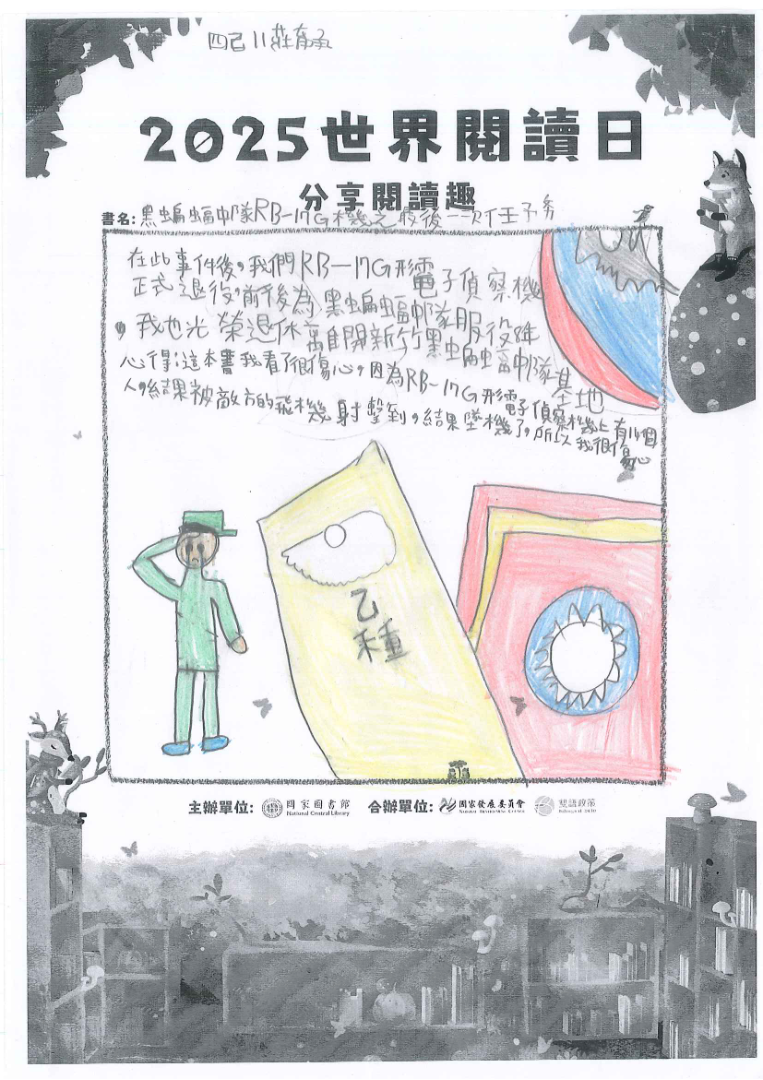 四己11莊育承
2025世界閱讀日
分享閱讀趣
書名:黑蝙蝠中隊RB-17G機之最後一次任務
在此事件後,我們RB-17G形電子偵察機
正式退役,前後為黑蝙蝠中隊服役
,我也光榮退休離開新竹黑蝙蝠中隊基地
心得:這本書我看了很傷心,因為RB-17G形電子偵察機上有14個
人,結果被敵方的飛機射擊到,結果墜機了,所以我很傷心
乙種
主辦單位: 國家圖書館 合辦單位: 國家發展委員會 雙語政策
National Central Library